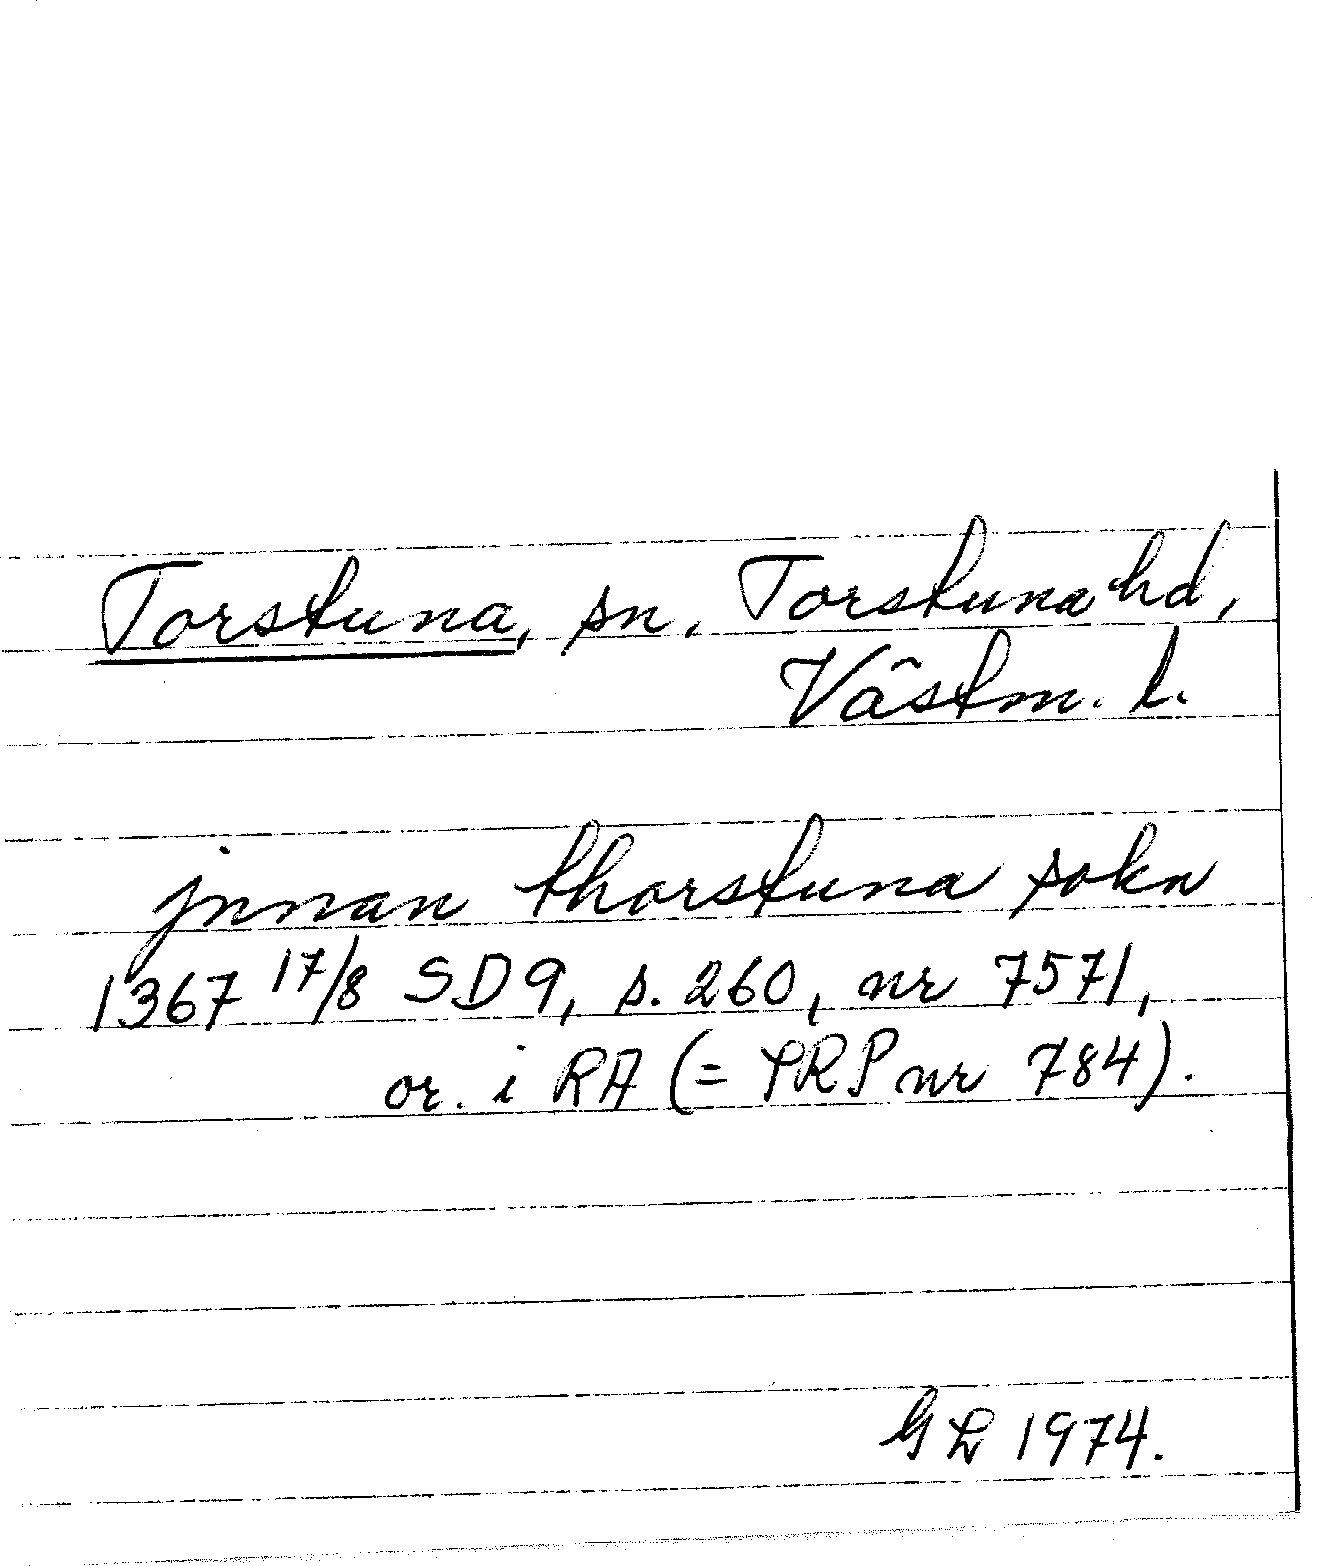 Torstuna, sn. Torstuna hd,
Västm. l.
jnnan thorstuna sokn
1367 17/8 SD 9, s. 260, nr 7571,
or. i RA (= PRP nr 784).
GL 1974.